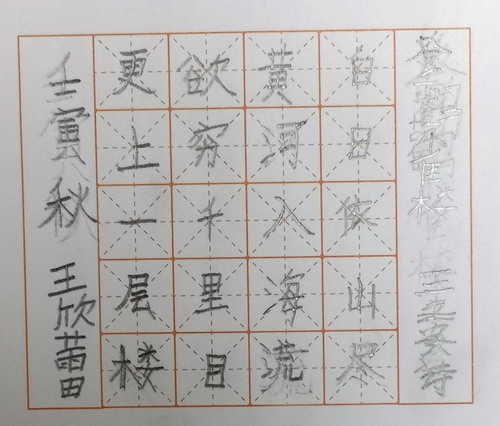 登鹳雀楼 王之涣诗
白日依山尽
黄河入海流
欲穷千里目
更上一层楼
壬寅秋 王欣蕾